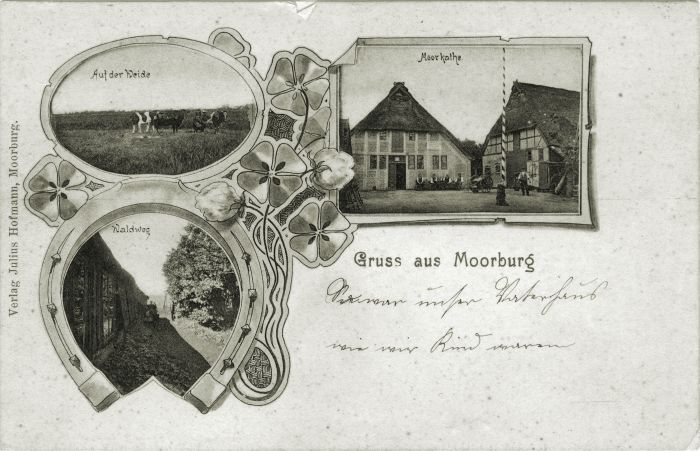 Auf der Weide
Moorkathe
Waldweg
Verlag Julius Hofmann, Moorburg.
Gruss aus Moorburg
war unser Vaterhaus
wie wir Kind waren